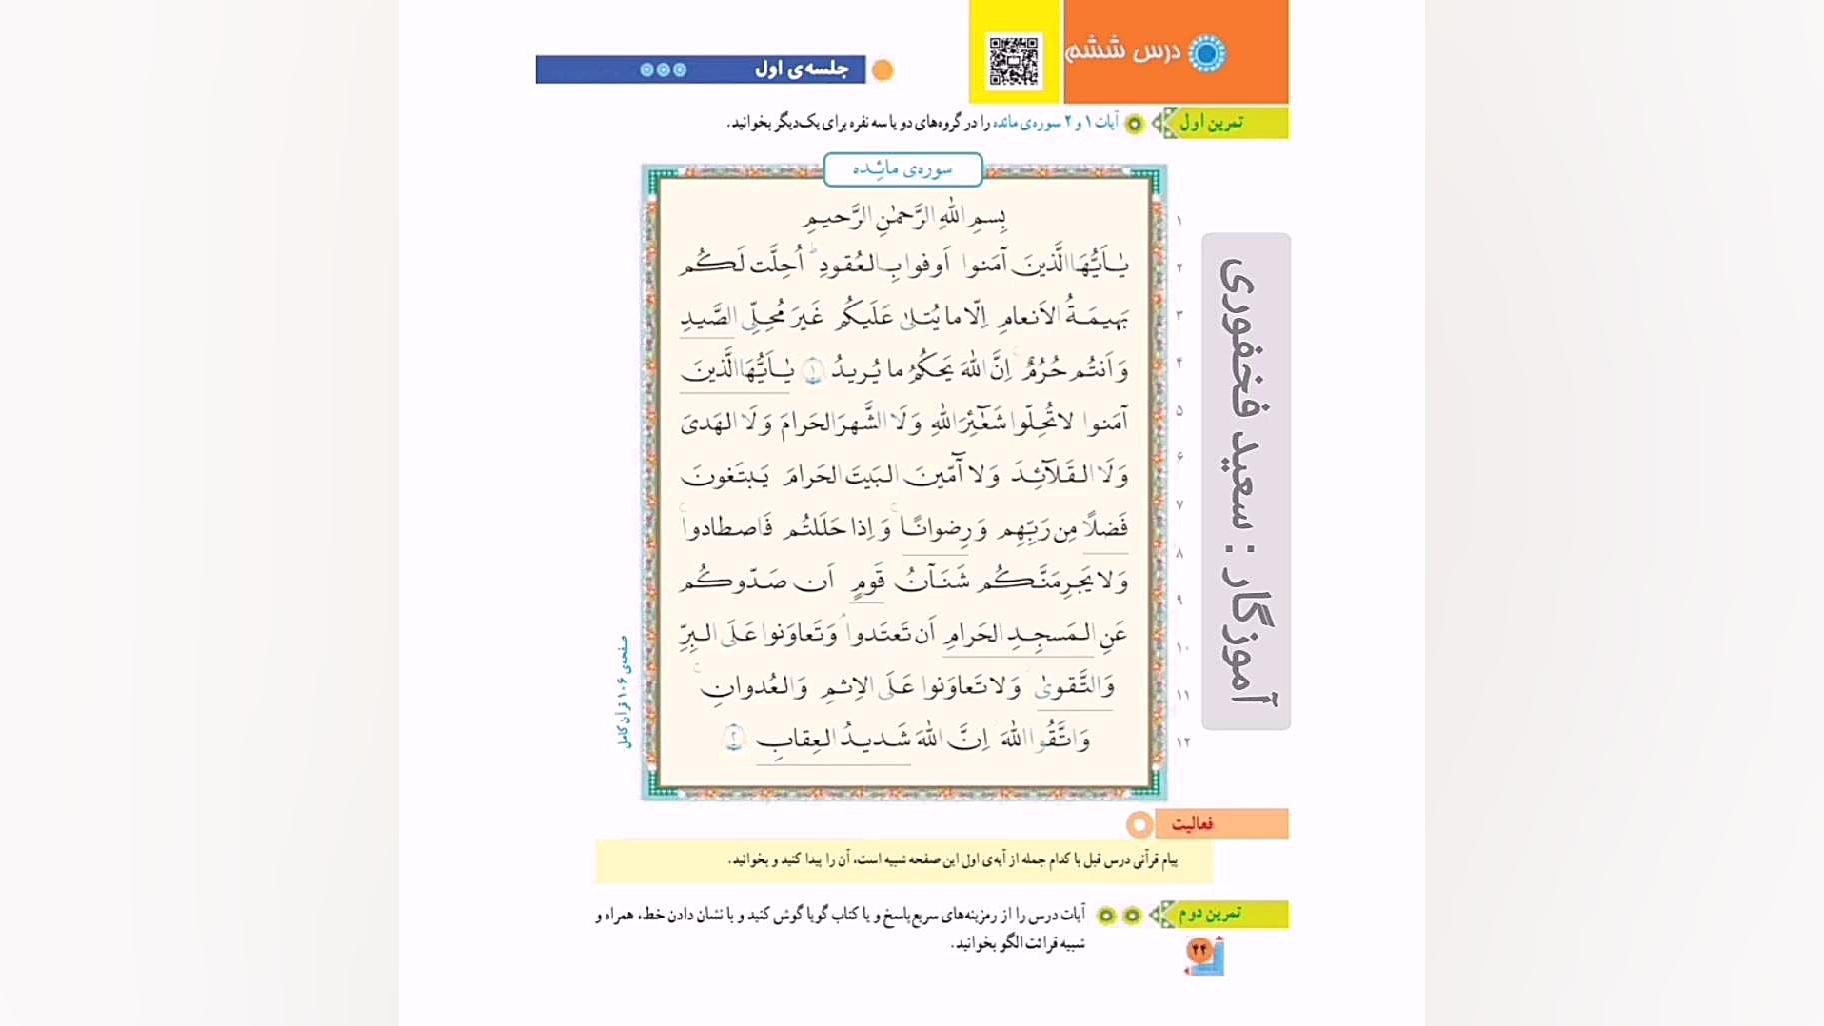 درس ششم
جلسه‌ی اول
تمرین اول
آیات ۱ و ۲ سوره‌ی مائده را در گروه‌های دو یا سه نفره برای یک‌دیگر بخوانید.
سوره‌ی مائِده
۱ بِسمِ اللّٰهِ الرَّحمٰنِ الرَّحیمِ
۲ یٰاَیُّهَا الَّذینَ آمَنوا اَوفوا بِالعُقودِ ۚ اُحِلَّت لَکُم
۳ بَهیمَةُ الاَنعامِ اِلّا ما یُتلیٰ عَلَیکُم غَیرَ مُحِلِّی الصَّیدِ
۴ وَ اَنتُم حُرُمٌ ۗ اِنَّ اللّٰهَ یَحکُمُ ما یُریدُ ۱ یٰاَیُّهَا الَّذینَ
۵ آمَنوا لا تُحِلّوا شَعٰٓئِرَ اللّٰهِ وَ لَا الشَّهرَ الحَرامَ وَ لَا الهَدیَ
۶ وَ لَا القَلآئِدَ وَ لا آمّینَ البَیتَ الحَرامَ یَبتَغونَ
۷ فَضلًا مِن رَبِّهِم وَ رِضوانًا ۚ وَ اِذا حَلَلتُم فَاصطادوا ۚ
۸ وَ لا یَجرِمَنَّکُم شَنَآنُ قَومٍ اَن صَدّوکُم
۹ عَنِ المَسجِدِ الحَرامِ اَن تَعتَدوا ۘ وَ تَعاوَنوا عَلَی البِرِّ
۱۰ وَ التَّقویٰ ۖ وَ لا تَعاوَنوا عَلَی الاِثمِ وَ العُدوانِ ۚ
۱۱ وَ اتَّقُوا اللّٰهَ ۖ اِنَّ اللّٰهَ شَدیدُ العِقابِ ۲
۱۲
صفحه‌ی ۱۰۶ قرآن کامل
آموزگار : سعید فخفوری
فعالیت
پیام قرآنی درس قبل با کدام جمله از آیه‌ی اول این صفحه شبیه است، آن را پیدا کنید و بخوانید.
تمرین دوم
آیات درس را از رمزینه‌های سریع‌پاسخ و یا کتاب گویا گوش کنید و با نشان دادن خط، همراه و
شبیه قرائت الگو بخوانید.
۴۴